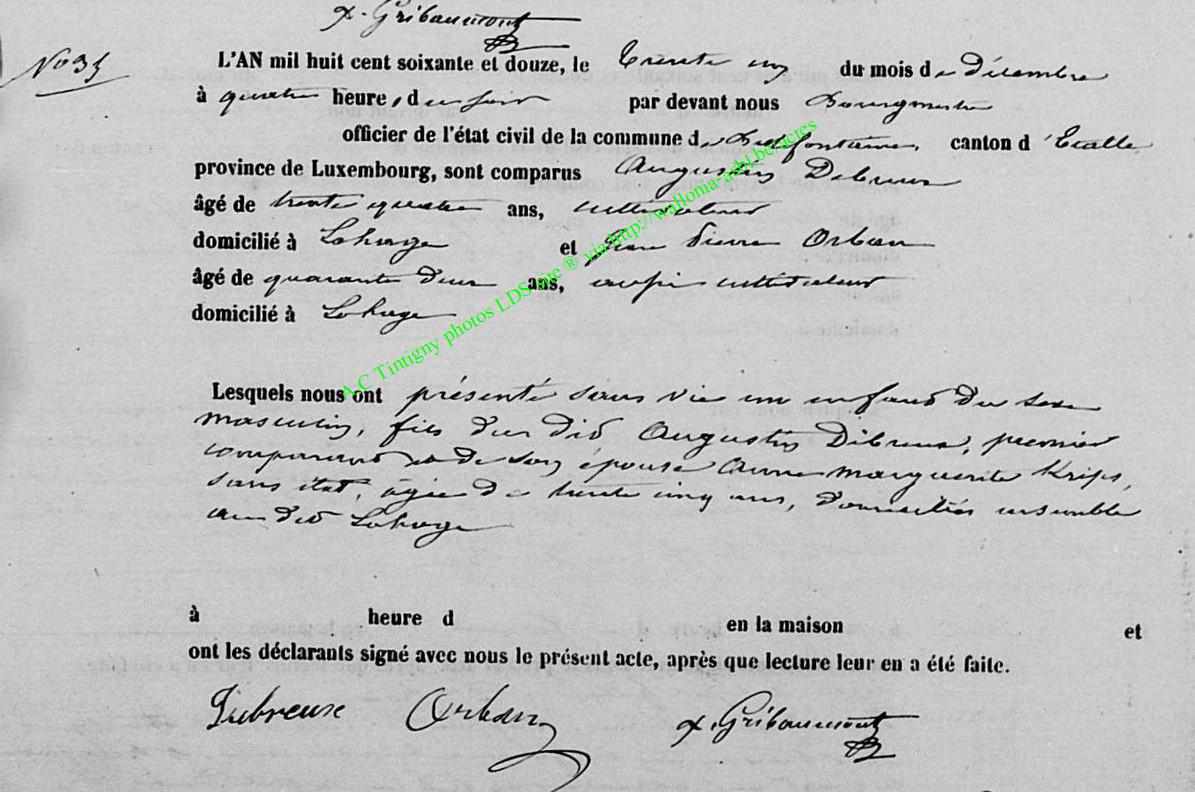 x. Gribaumont
No 35
L'AN mil huit cent soixante et douze, le trente un du mois de Décembre
à quatre heures du soir par devant nous Bourgmestre
officier de l'état civil de la commune de fontaine, canton d'Etalle
province de Luxembourg, sont comparus Augustin Dibreux
âgé de trente quatre ans, cultivateur
domicilié à Lahage et Jean Pierre Orban
âgé de quarante deux ans, aussi cultivateur
domicilié à Lahage
A.C Tintigny photos LDS site ® via http://wallonia-asbl.be/actes
Lesquels nous ont présenté sans vie un enfant du sexe
masculin, fils du dit Augustin Dibreux, premier
comparant et de son épouse Anne Marguerite Krips,
sans état, âgée de trente cinq ans, domiciliés ensemble
au dit Lahage
à heure d en la maison et
ont les déclarants signé avec nous le présent acte, après que lecture leur en a été faite.
Dubreuse Orban x. Gribaumont